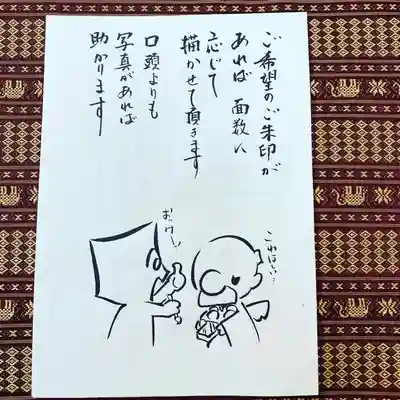 ご希望のご朱印が
あれば 面数に
応じて
描かせて頂きます
口頭よりも
写真があれば
助かります
おっけー
これほしい…